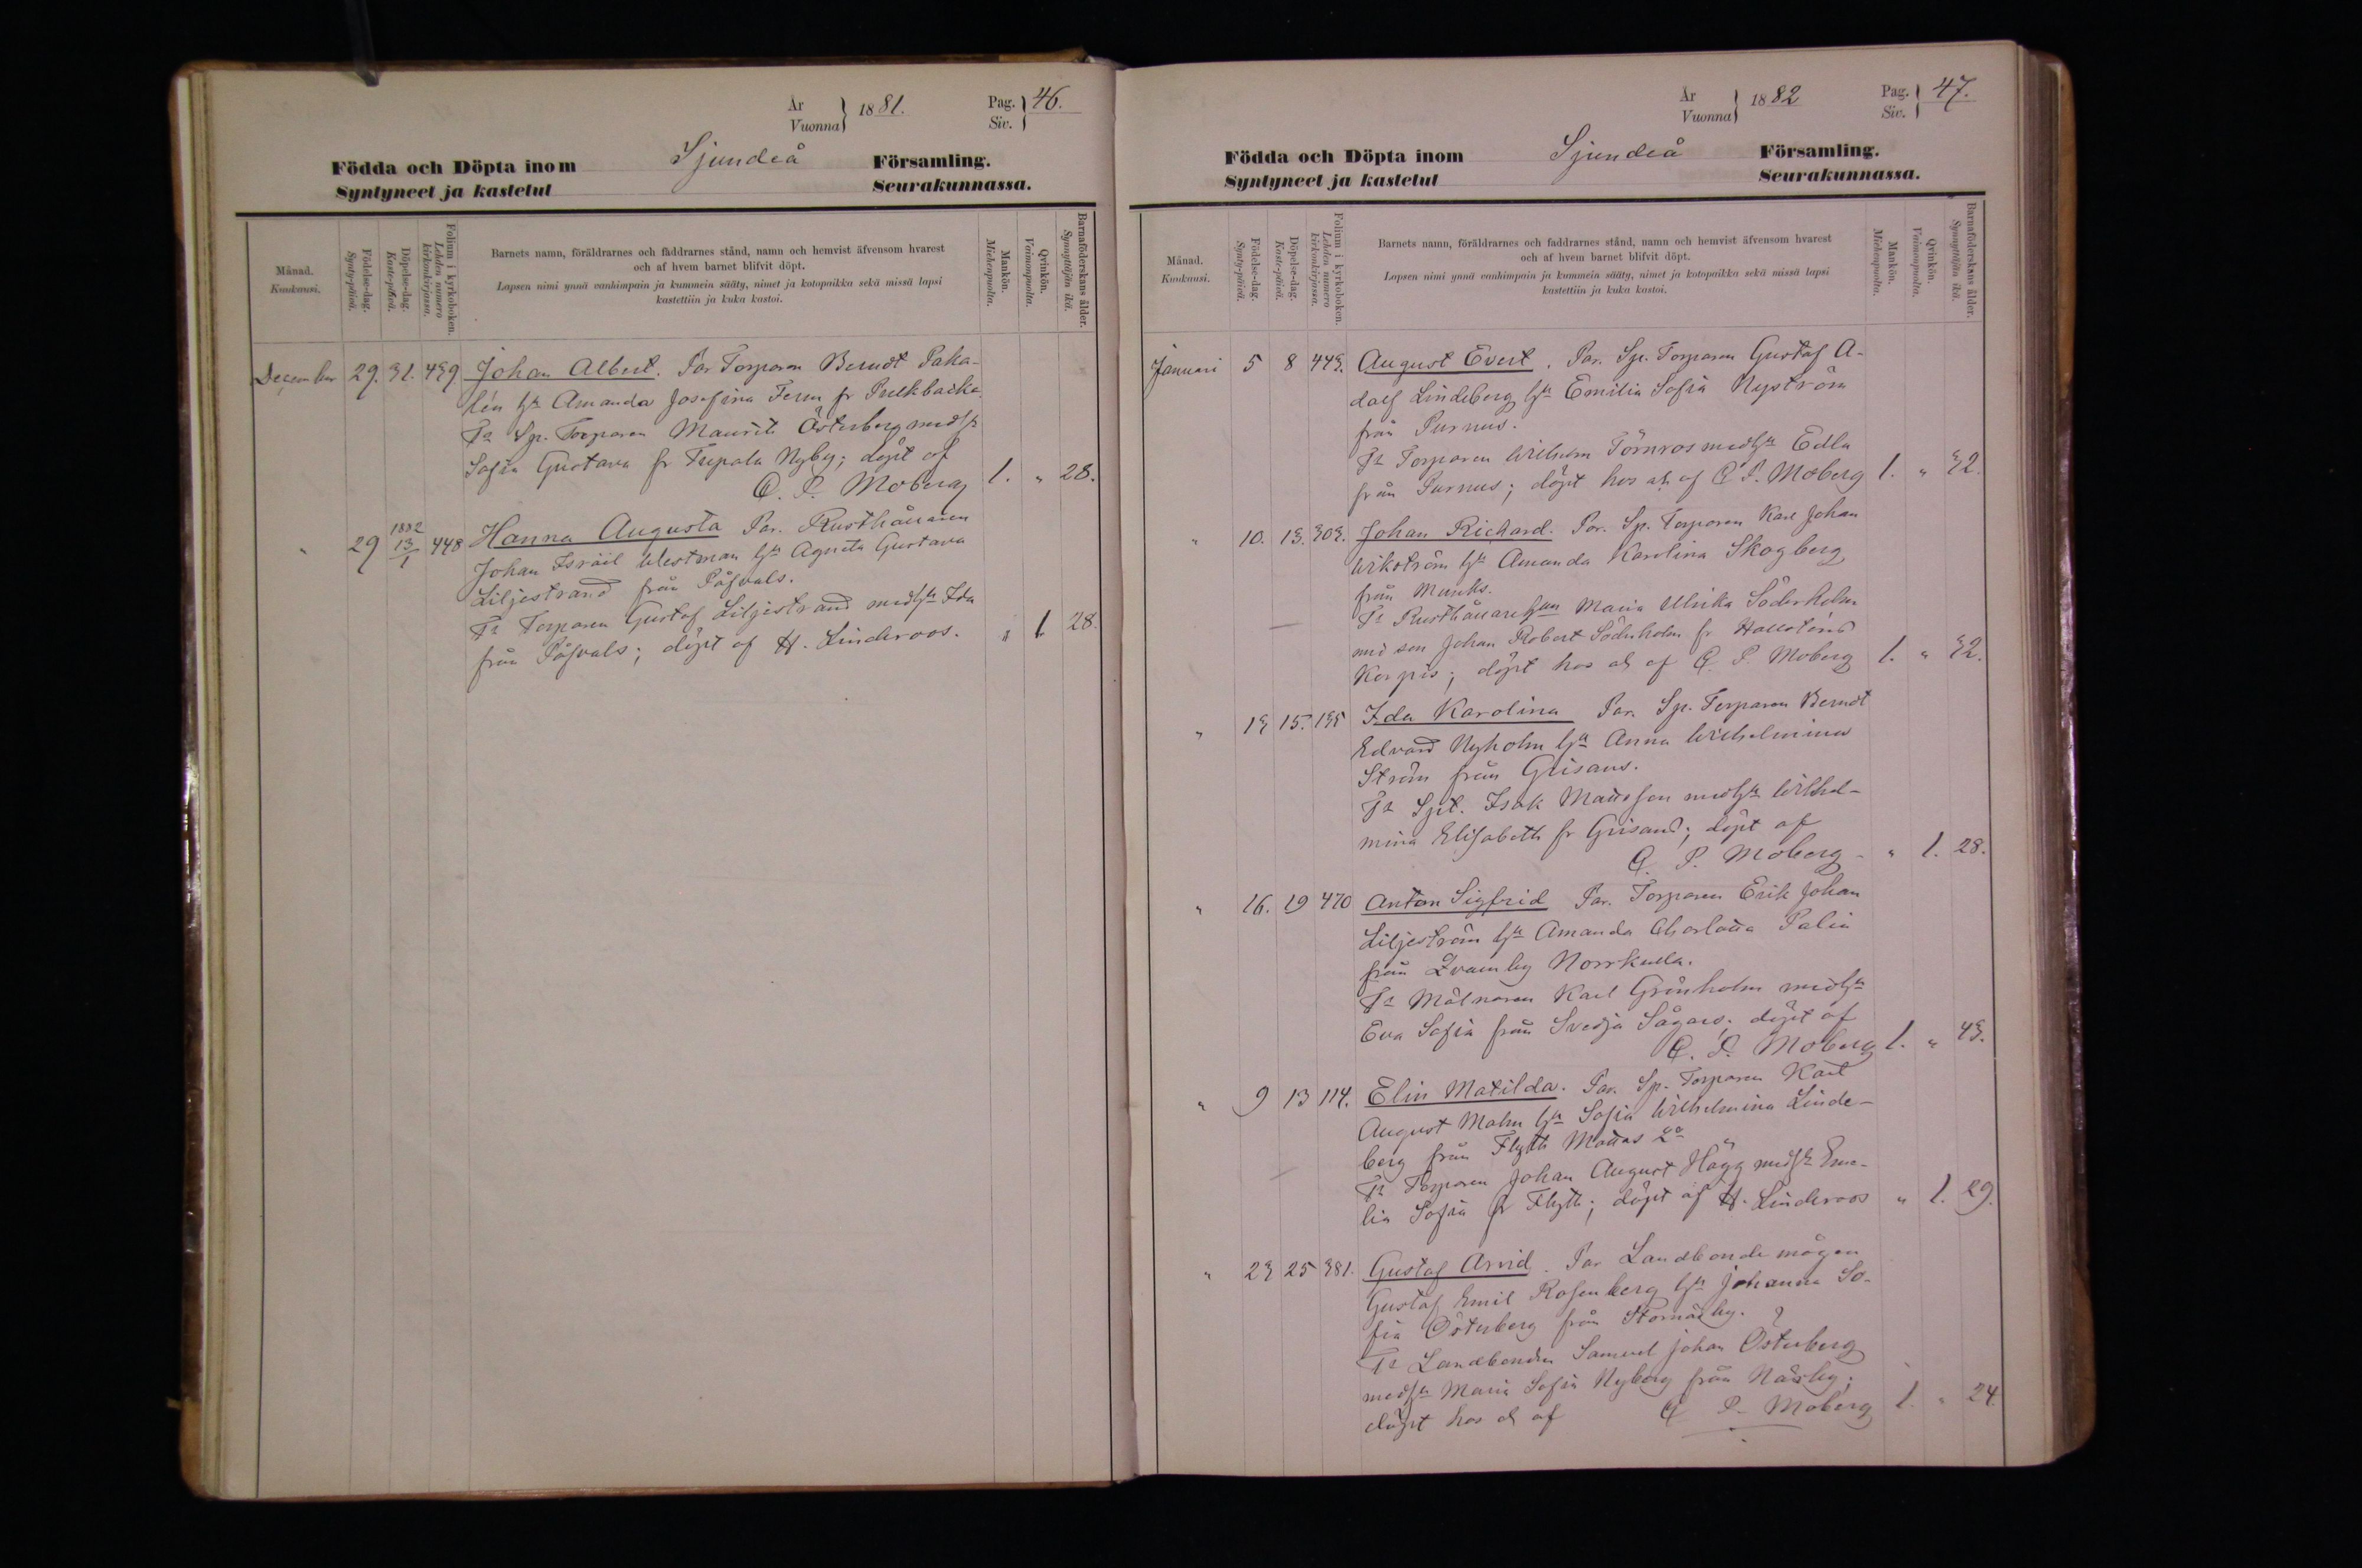 År
Vuonna
1881.
Pag.
Siv.
46.
Födda och Döpta inom Sjundeå Församling.
Syntyneet ja kastetut Seurakunnassa.
Månad.
Kuukausi.
Födelse-dag.
Synty-päivä.
Döpelse-dag.
Kaste-päivä.
Folium i kyrkoboken.
Lehden numero kirkonkirjassa.
Barnets namn, föräldrarnes och faddrarnes stånd, namn och hemvist äfvensom hvarest
och af hvem barnet blifvit döpt.
Lapsen nimi ynnä vanhimpain ja kummein sääty, nimet ja kotopaikka sekä missä lapsi
kastettiin ja kuka kastoi.
Mankön.
Miehenpuolta.
Qvinkön.
Vaimonpuolta.
Barnaföderskans ålder.
Synnyttäjän ikä.
December 29. 31. 439 Johan Albert. Par Torparen Berndt Paka-
lén hu Amanda Josefina Ferm fr
Fr Sp. Torparen Maurits Österberg med hu
Sofia Gustava fr Nyby; döpt af
Q. P. Moberg 1. " 28.
" 29 1882 13/1 448 Hanna Augusta Par. Rusthållaren
Johan Israel Westman hu Agneta Gustava
Liljestrand från Påfvals.
Fr Torparen Gustaf Liljestrand med hu Ida
från Påfvals; döpt af H. Linderoos. " 1 28.
År
Vuonna
1882
Pag.
Siv.
47.
Födda och Döpta inom Sjundeå Församling.
Syntyneet ja kastetut Seurakunnassa.
Månad.
Kuukausi.
Födelse-dag.
Synty-päivä.
Döpelse-dag.
Kaste-päivä.
Folium i kyrkoboken.
Lehden numero kirkonkirjassa.
Barnets namn, föräldrarnes och faddrarnes stånd, namn och hemvist äfvensom hvarest
och af hvem barnet blifvit döpt.
Lapsen nimi ynnä vanhimpain ja kummein sääty, nimet ja kotopaikka sekä missä lapsi
kastettiin ja kuka kastoi.
Mankön.
Miehenpuolta.
Qvinkön.
Vaimonpuolta.
Barnaföderskans ålder.
Synnyttäjän ikä.
Januari 5 8 443. August Evert. Par. Sp. Torparen Gustaf A-
dolf Lindeberg hu Emilia Sofia Nyström
från Purnus.
Fr Torparen Wilhelm Törnros med hu Edla
från Purnus; döpt hos af Q. P. Moberg 1. " 32.
" 10. 13. 303. Johan Richard. Par. Sp. Torparen Karl Johan
Wikström hu Amanda Karolina Skogberg
från Munks.
Fr Maria Ulrika Söderholm
med son Johan Robert Söderholm fr
Korpis; döpt hos af Q. P. Moberg 1. " 32.
" 13 15. 135 Ida Karolina Par. Sp. Torparen Berndt
Edvard Nyholm hu Anna Wilhelmina
Ström från Grisans.
Fr Spit. Isak Mattsson med hu Wilhel-
mina Elisabeth fr Grisans; döpt af
Q. P. Moberg - " 1. 28.
" 16. 19 470 Anton Sigfrid Par. Torparen Erik Johan
Liljeström hu Amanda Charlotta Palin
från Norrkulla.
Fr Mölnaren Karl Grönholm med hu
Eva Sofia från Svedja Sågars; döpt af
Q. P. Moberg 1. " 43.
" 9 13 114. Elin Matilda. Par. Sp. Torparen Karl
August Malm hu Sofia Wilhelmina Linde-
berg från Flyth Mattas
Fr Torparen Johan August Hägg med hu Eme-
lia Sofia fr Flyth; döpt af H. Linderoos " 1. 29.
" 23 25 381. Gustaf Arvid. Par Landbonde mågen
Gustaf Emil Rosenberg hu Johanna So-
fia Österberg från
Fr Landbonden Samuel Johan Österberg
med hu Maria Sofia Nyberg från Näsby;
döpt hos af Q P. Moberg 1. " 24.